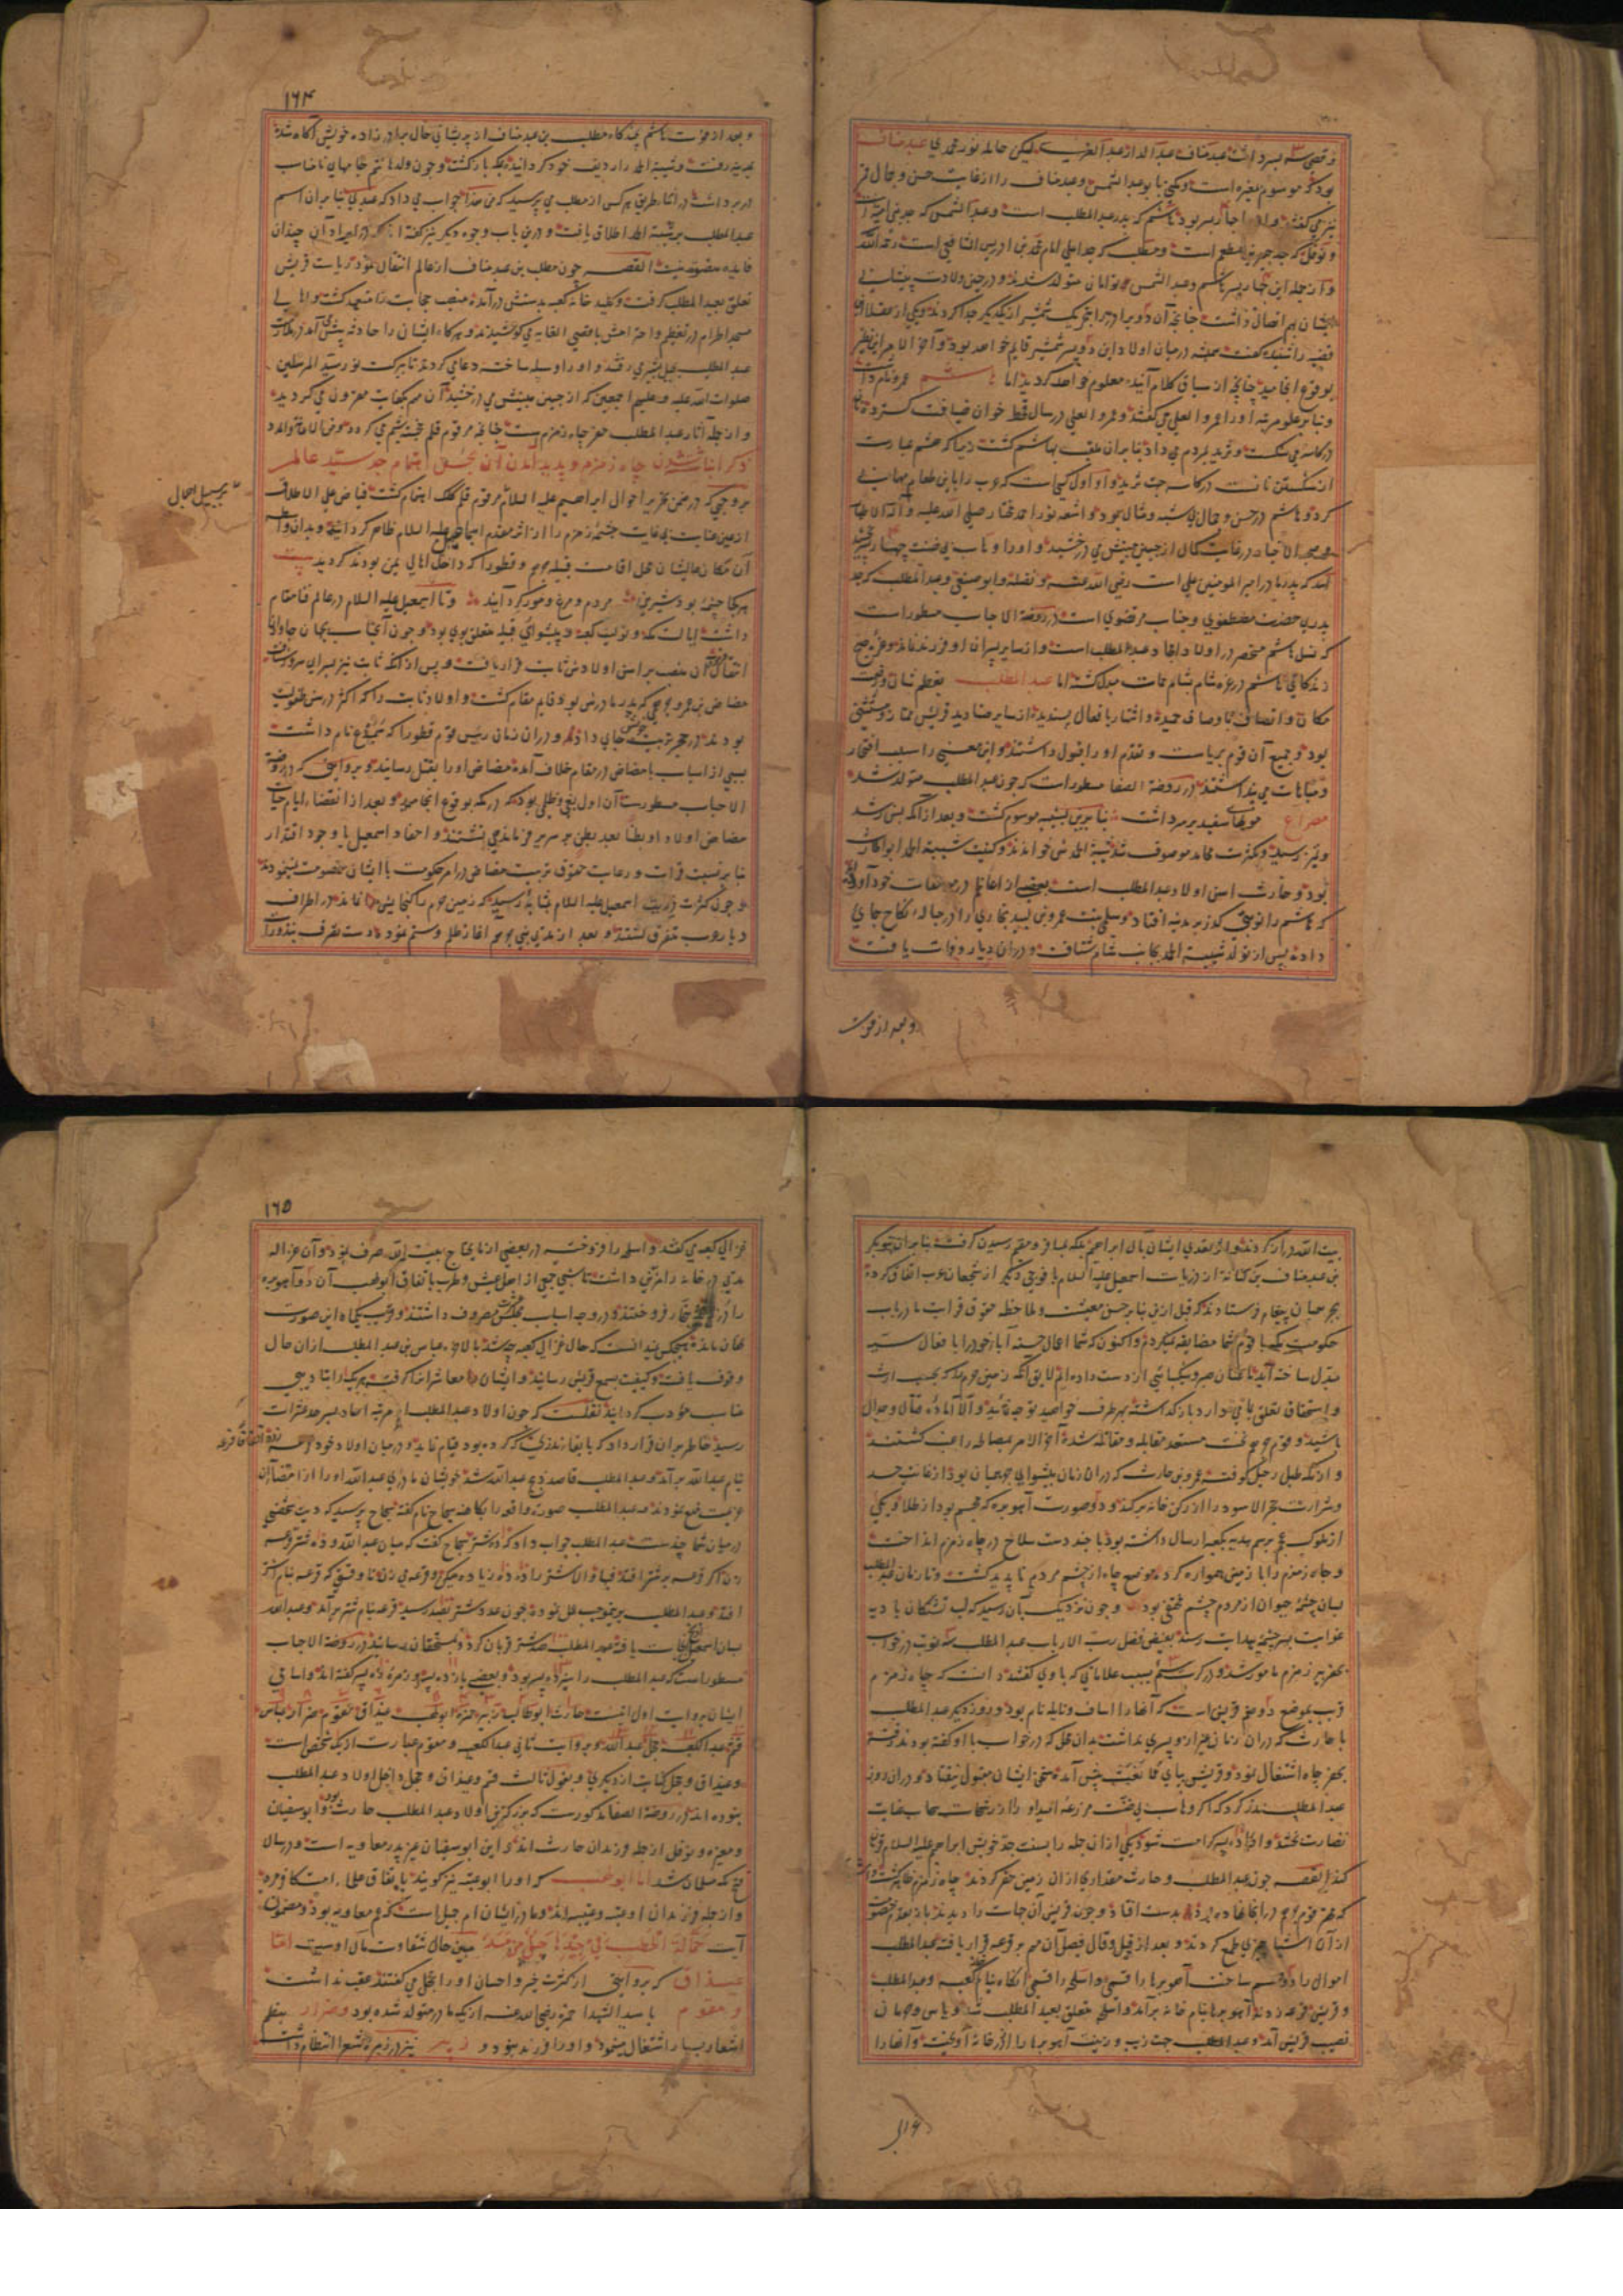 و قصی سه پسر داشت عبد مناف عبد الدار عبد العزی لیکن حامل نور محمدی عبد مناف
بود که موسوم بمغیره است و مکنی بابو عبد الشمس و عبد مناف را از غایت حسن و جمال قمر
نیز می گفتند و او را چهار پسر بود هاشم که پدر عبد المطلب است و عبد الشمس که جد بنی امیه است
و نوفل که جد جبیر بن مطعم است و مطلب که جد اعلی امام محمد بن ادریس الشافعی است رحمة الله
و از جمله این چهار پسر هاشم و عبد الشمس توامان متولد شدند و در حین ولادت پیشانی
ایشان بهم اتصال داشت چنانچه آن دو برادر را بتحریک شمشیر از یکدیگر جدا کردند و یکی از عقلا این
قضیه را شنیده گفت همیشه در میان اولاد این دو پسر شمشیر قایم خواهد بود و آخر الامر این نظیر
بوقوع انجامید چنانچه از سیاق کلام آینده معلوم خواهد کردید اما هاشم عمرو نام داشت
و بنابر علو مرتبه او را عمرو العلی می گفتند و عمرو العلی در سال قحط خوان ضیافت گسترده نان
در کاسه می شکست و ثرید بمردم می داد بنابران ملقب بهاشم گشت زیرا که هشم عبارت
از شکستن نانست در کاسه جهت ثرید و او اول کسی است که عرب را باین طعام مهمانی
کرد و هاشم در حسن و جمال بی شبه و مثال بود و اشعه نور احمد مختار صلی الله علیه و آله الاطهار
و صحبه الاخیار در غایت کمال از جبین مبینش می درخشید و او را وهاب بی ضنت چهار پسر بخشید
اسد که پدر مادر امیر المومنین علی است رضی الله عنه و نضله و ابو صیفی و عبد المطلب که جد
پدری حضرت مصطفوی و جناب مرتضوی است در روضة الاحباب مسطور است
که نسل هاشم منحصر در اولاد امجاد عبد المطلب است و از سایر پسران او فرزند نماند و عز صبح
زندگانی هاشم در غزه شام بشام ممات مبدل گشت اما عبد المطلب بعظم شان و رفعت
مکان و اتصاف باوصاف حمیده و اشتهار بافعال پسندیده از سایر صنادید قریش ممتاز و مستثنی
بود و جمیع آن قوم بریاست و تقدم او را قبول داشتند و این معنی را سبب افتخار
و مباهات می پنداشتند در روضة الصفا مسطور است که چون عبد المطلب متولد شد
مصراع موهای سفید بر سر داشت بنابرین بشیبه موسوم گشت و بعد از آنکه بسن رشد
و تمیز رسید و بکثرت محامد موصوف شد شیبة الحمدش خواندند و کنیت شیبة الحمد ابو الحارث
بود و حارث اسن اولاد عبد المطلب است بعضی از اعاظم در مولفات خود آورده
که هاشم را نوبتی گذر بر مدینه افتاد و سلمی بنت عمرو بن لبید بخاری را در حباله نکاح جای
داد و پس از تولد شیبة الحمد بجانب شام شتافت و در ان دیار وفات یافت
و بعد از فوت
۱۶۴
و بعد از فوت هاشم چندگاه مطلب بن عبد مناف از پریشانی حال برادر زاده خویش آگاه شده
بمدینه رفت و شیبة الحمد را ردیف خود گردانیده بمکه باز گشت و چون ولد هاشم جامهای نامناسب
در بر داشت در اثنا طریق هر کس از مطلب می پرسید که من هذا جواب می داد که عبدی بنابران اسم
عبد المطلب بر شیبة الحمد اطلاق یافت و درین باب وجوه دیگر نیز گفته اند که در ایراد آن چندان
فایده متصور نیست القصه چون مطلب بن عبد مناف از عالم انتقال نمود ریاست قریش
تعلق بعبد المطلب گرفت و کلید خانه کعبه بدستش درآمده منصب حجابت را متعهد گشت و اهالی
مسجد الحرام در تعظیم و احترامش باقصی الغایه می کوشیدند و هرگاه ایشان را حادثه پیش می آمد در ملازمت
عبد المطلب بجبل ثبیر می رفتند و او را وسیله ساخته دعا می کردند تا ببرکت نور سید المرسلین
صلوات الله علیه و علیهم اجمعین که از جبین مبینش می درخشید آن مهم بکفایت مقرون می گردید
و از جمله آثار عبد المطلب حفر چاه زمزم است چنانچه مرقوم قلم خجسته رقم می گردد و من الاعانة و المدد
ذکر انباشته شدن چاه زمزم و پدید آمدن آن بحسن اهتمام جد سید عالم
بر سبیل اجمال
بر وجهی که در ضمن تحریر احوال ابراهیم علیه السلام مرقوم قلم کلک اهتمام گشت فیاض علی الاطلاق
از عین عنایت بی غایت چشمه زمزم را از اثر مقدم اسماعیل علیه السلام ظاهر گردانید و بدان واسطه
آن مکان عالیشان محل اقامت قبیله جرهم و قطورا که داخل اهالی یمن بودند گردید بیت
هر کجا چشمه بود شیرین مردم و مرغ و مور گرد آیند و تا اسمعیل علیه السلام در عالم فنا مقام
داشت ایالت مکه و تولیت کعبه و پیشوائی قبیله متعلق بوی بود و چون آنجناب بجهان جاودان
انتقال فرمود آن منصب بر اسن اولادش ثابت قرار یافت و پس از آنکه ثابت نیز بسرای سرور شتافت
مضاض بن عمرو جرهمی که پدر مادرش بود قایم مقام گشت و اولاد ثابت را که اکثر در سن طفولیت
بودند در حجر تربیت خویش جای داد و در ان زمان رئیس قوم قطورا که سمیدع نام داشت
بسببی از اسباب با مضاض در مقام خلاف آمده مضاض او را بقتل رسانید و بروایتی که در روضة
الاحباب مسطور است آن اول بغی و ظلمی بود که در مکه بوقوع انجامید و بعد از انقضاء ایام حیات
مضاض اولاد او بطنا بعد بطن بر سریر فرماندهی نشستند و احفاد اسمعیل با وجود اقتدار
بنابر نسبت قرابت و رعایت حقوق تربیت مضاض در امر حکومت با ایشان خصومت نمینمودند
و چون کثرت ذریت اسمعیل علیه السلام بمثابه رسید که زمین حرم را گنجایش نماند در اطراف
دیار عرب متفرق گشتند و بعد از مدتی بنی جرهم اغاز ظلم و ستم نموده دست تصرف بنذورات
بیت الله دراز کردند و از تعدی ایشان بال ابراهیم بلکه بمسافر و مقیم رسیدن گرفت بنابران بنو بکر
بن عبد مناف بن کنانة از ذریات اسمعیل علیه السلام با فوجی دیگر از شجعان عرب اتفاق کرده
بجرهمیان پیغام فرستادند که قبل ازین بنابر حسن معیشت و ملاحظه حقوق قرابت ما در باب
حکومت مکه با قوم شما مضایقه نمیکردیم و اکنون که شما اعمال حسنه آباء خود را بافعال سیه
مبدل ساخته آید ما عنان صبر و شکیبائی از دست داده ایم لایق آنکه زمین حرم را که بحسب ارث
و استحقاق تعلق بما می دارد باز گذاشته بهر طرف خواهید توجه نمائید و الا آماده قتال و جدال
باشید و قوم جرهم نخست مستعد مقابله و مقاتله شده آخر الامر بمصالحه راغب گشتند
و از مکه طبل رحیل کوفته عمرو بن حارث که در ان زمان پیشوای جرهمیان بود از غایت حسد
و شرارت حجر الاسود را از رکن خانه بر کند و دو صورت آهو بره که مجسم بود از طلا و یکی
از ملوک عجم برسم هدیه بکعبه ارسال داشته بود با چند دست سلاح در چاه زمزم انداخت
و چاه زمزم را با زمین هموار کرد و موضع چاه از چشم مردم ناپدید گشت و تا زمان عبد المطلب
بسان چشمه حیوان از مردم چشم مختفی بود و چون نزدیک بآن رسید که لب تشنگان بادیه
غوایت بسرچشمه هدایت رسند بفیض فضل رب الارباب عبد المطلب سه نوبت در خواب
بحفر بیر زمزم مامور شد و در کرت سیم بسبب علاماتی که با وی گفتند دانست که چاه زمزم
قریب بموضع دو صنم قریش است که آنها را اساف و نائله نام بود و روز دیگر عبد المطلب
با حارث که در ان زمان غیر ازو پسری نداشت بدان محل که در خواب با او گفته بودند رفته
بحفر چاه اشتغال نمود و قریش بپای ممانعت پیش آمده سخن ایشان مقبول نیفتاد و در ان روز
عبد المطلب نذر کرد که اگر وهاب بی ضنت مزرعه امید او را از رشحات سحاب عنایت
نضارت بخشد و او را ده پسر کرامت شود یکی ازان جمله را بسنت جد خویش ابراهیم علیه السلام قربان
کند القصه چون عبد المطلب و حارث مقداری از ان زمین حفر کردند چاه زمزم ظاهر گشت
که عمرو قوم جرهم در انجا نهاده بود بدست افتاد و چون قریش آن جهات را دیدند باز بمقام خصومت
ازان اشیا چیزی طمع کردند و بعد از قیل و قال فیصل آن مهم بر قرعه قرار یافته عبد المطلب
اموال را دو قسم ساخت آهو برها را قسمی و اسلحه را قسمی آنگاه بنام کعبه و عبد المطلب
و قریش قرعه زدند آهو برها بنام خانه برآمد و اسلحه متعلق بعبد المطلب شد و یاس و حرمان
نصیب قریش آمد و عبد المطلب جهت زیب و زینت آهو برها را از در خانه آویخت و آنها را
۱۶۵
غزالی کعبه می گفتند و اسلحه را فروخته در بعضی از مایحتاج بیت الله صرف نمود و آن غزاله
مدتی در خانه را مزین داشت تا شبی جمعی از اهل عیش و طرب باتفاق ابو لهب آن دو آهو بره
همان ماند و هیچکس ندانست که حال غزالی کعبه چه شد بالاخره عباس بن عبد المطلب ازان حال
وقوف یافت و کیفیت بسمع قریش رسانید
مناسب مودب گردانید نقلست که چون اولاد عبد المطلب از مرتبه احاد بسرحد عشرات
رسید خاطر بران قرار داد که بایفاء نذری که کرده بود قیام نماید و در میان اولاد خود قرعه
زده اتفاقا قرعه
بنام عبد الله برآمد و عبد المطلب قاصد ذبح عبد الله شد خویشان مادری عبد الله او را از امضاء آن
عزیمت منع نمودند
درمیان شما چندست عبد المطلب جواب داد که ده شتر سجاح گفت که میان عبد الله و ده شتر قرعه
زن اگر قرعه بر شتر افتد فبها و الا شتر را ده ده زیاده میکن و قرعه می زن تا وقتی که قرعه بنام شتر
افتد و عبد المطلب بر بموجب عمل نموده چون عدد شتر بصد رسید قرعه بنام شتر برآمد و عبد الله
بسان اسمعیل نجات یافته عبد المطلب صد شتر قربان کرد و بمستحقان رسانید در روضة الاحباب
مسطور است که عبد المطلب را سیزده پسر بود و بعضی یازده پسر و زمرهٔ ده پسر گفته اند و اسامی
ایشان بروایت اول اینست حارث ابو طالب زبیر حمزه ابو لهب غیداق مقوم ضرار عباس
قثم عبد الکعبه جحل عبد الله و بروایت ثانی عبد الکعبه و مقوم عبارت از یک شخص است
و غیداق و جحل کنایت از دیگری و بقول ثالث قثم و غیداق و جحل داخل اولاد عبد المطلب
نبوده اند در روضة الصفا مذکورست که بزرگترین اولاد عبد المطلب حارث بود و ابو سفیان
و مغیره و نوفل از جمله فرزندان حارث اند و این ابو سفیان غیر پدر معاویه است و در سال
فتح مکه مسلمان شد اما ابو لهب که او را ابو عتبه نیز گویند باتفاق علماء امت کافر مرد
و از جمله فرزندان او عتبه و عتیبه اند و مادر ایشان ام جمیل است که عمه معاویه بود و مضمون
آیت حمالة الحطب فی جیدها حبل من مسد مبین حال شقاوت مآل اوست اما
غیداق که بروایتی از کثرت خیر و احسان او را جحل می گفتند عقب نداشت
و مقوم با سید الشهدا حمزه رضی الله عنه از یک مادر متولد شده بود و ضرار بنظم
اشعار بسیار اشتغال مینمود و او را فرزند نبود و زبیر نیز در زمره شعرا انتظام داشت